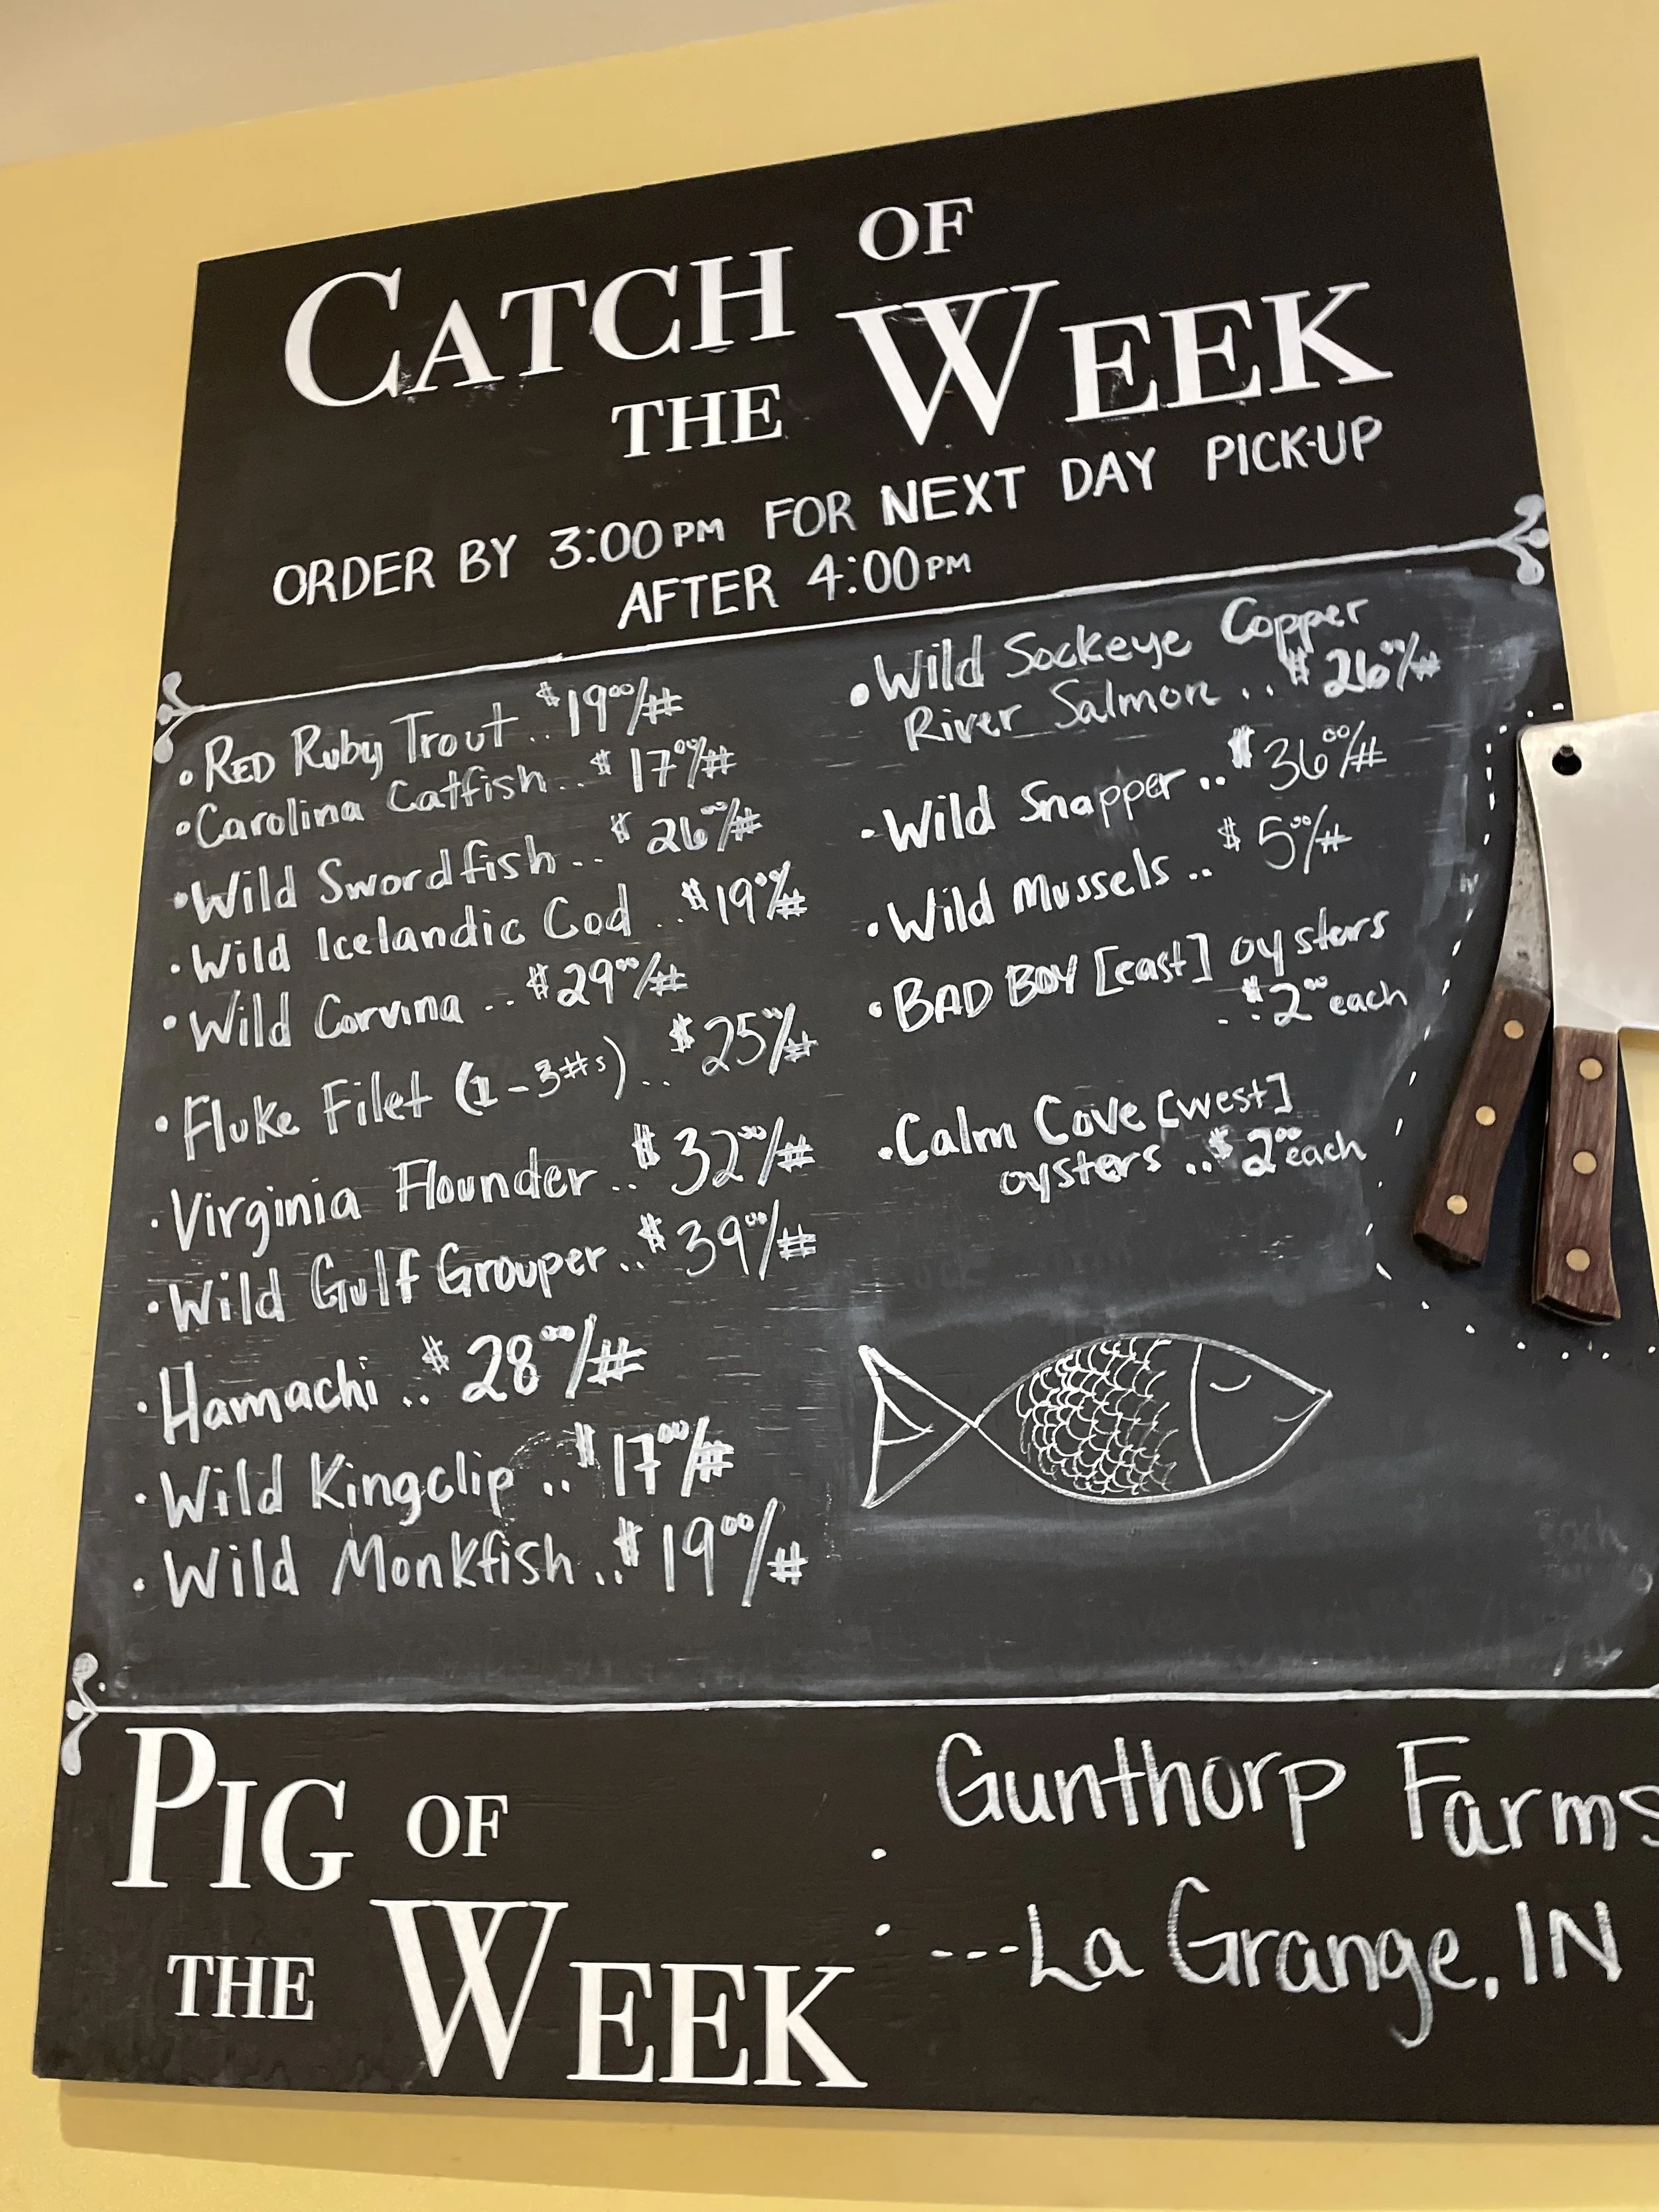 CATCH OF
THE WEEK
ORDER BY 3:00PM FOR NEXT DAY PICK-UP
AFTER 4:00PM
• RED Ruby Trout .. $19⁰⁰/#
• Carolina Catfish .. $17⁰⁰/#
• Wild Swordfish .. $26⁰⁰/#
• Wild Icelandic Cod .. $19⁰⁰/#
• Wild Corvina .. $29⁰⁰/#
• Fluke Filet (1-3#s) .. $25⁰⁰/#
• Virginia Flounder .. $32⁰⁰/#
• Wild Gulf Grouper .. $39⁰⁰/#
• Hamachi .. $28⁰⁰/#
• Wild Kingclip .. $17⁰⁰/#
• Wild Monkfish .. $19⁰⁰/#
• Wild Sockeye Copper
River Salmon .. $26⁰⁰/#
• Wild Snapper .. $36⁰⁰/#
• Wild Mussels .. $5⁰⁰/#
• BAD BOY [east] oysters
.. $2⁰⁰ each
• Calm Cove [west]
oysters .. $2⁰⁰ each
PIG OF
THE WEEK
: Gunthorp Farms
---La Grange, IN